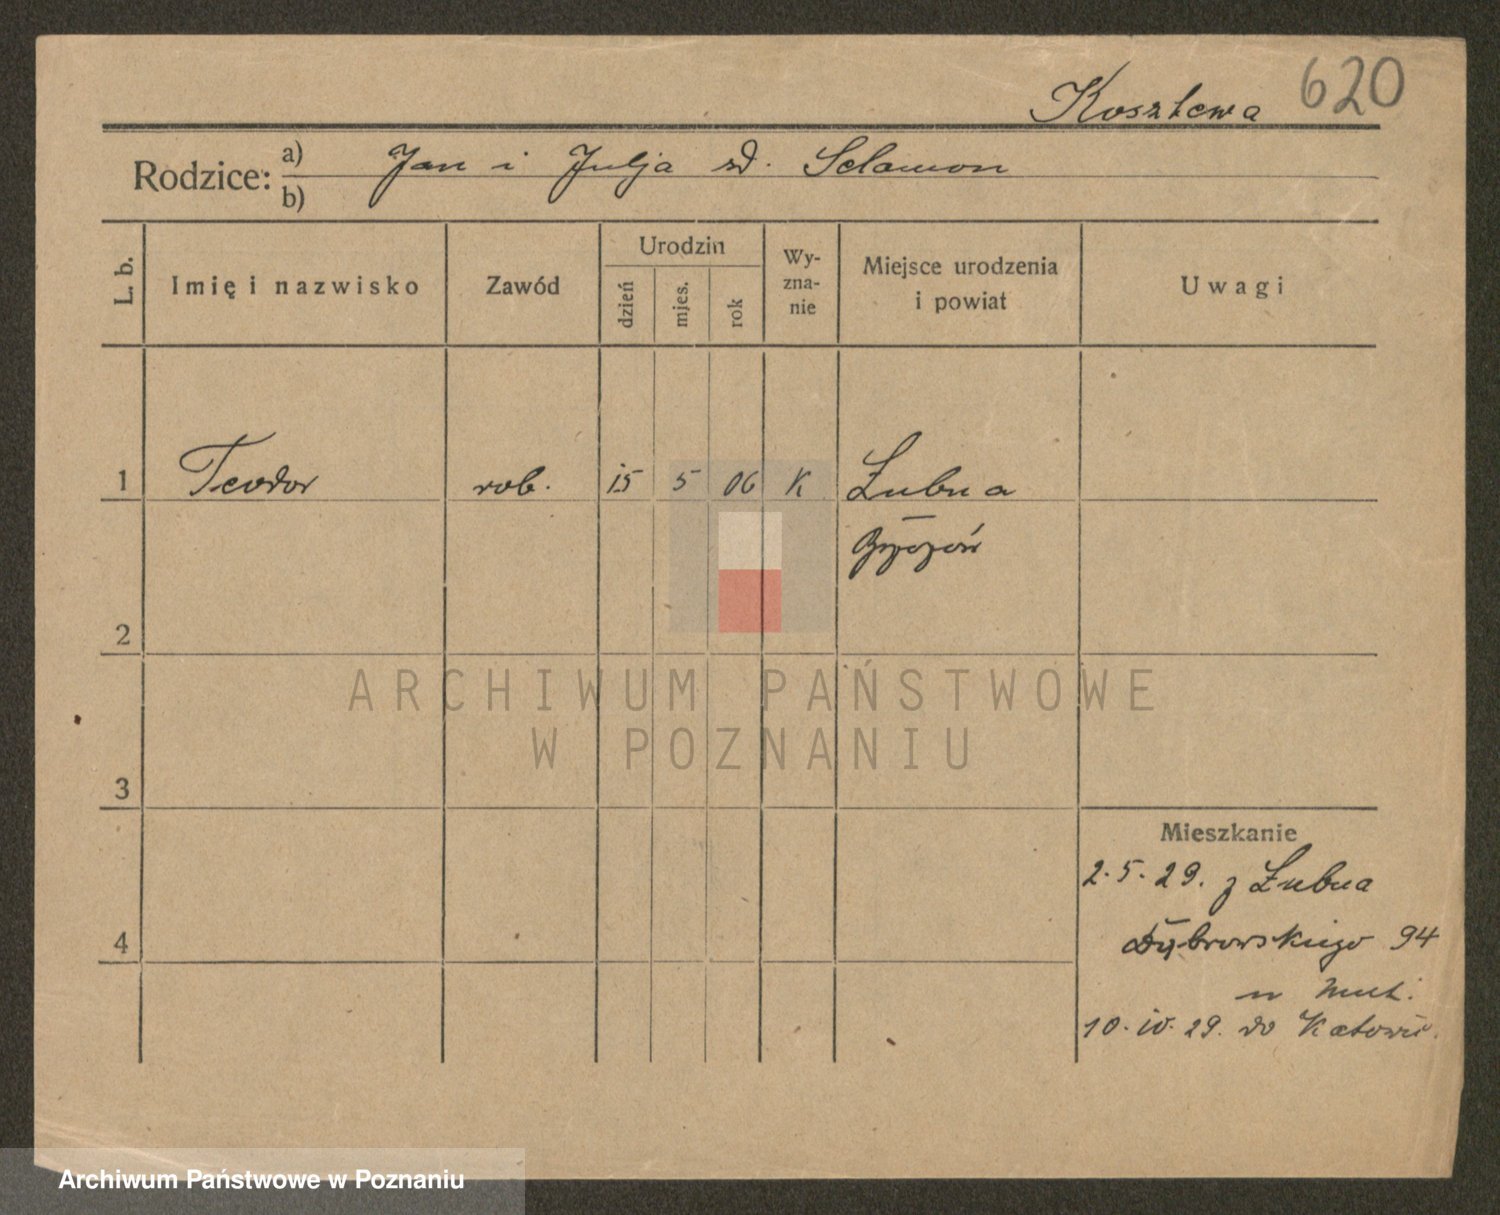 620
Kosztewa
Rodzice: a) Jan i Julja zd. Selamon
b)
L. b. Imię i nazwisko Zawód Urodzin dzień mjes. rok Wy-zna-nie Miejsce urodzenia i powiat Uwagi
1 Teodor rob. 15 5 06 K Łubna
Brzozów
2
3
Mieszkanie
2.5.29. z Łubna
4 Dąbrowskiego 94
10.IV.29. do Katowic.
ARCHIWUM PAŃSTWOWE
W POZNANIU
Archiwum Państwowe w Poznaniu